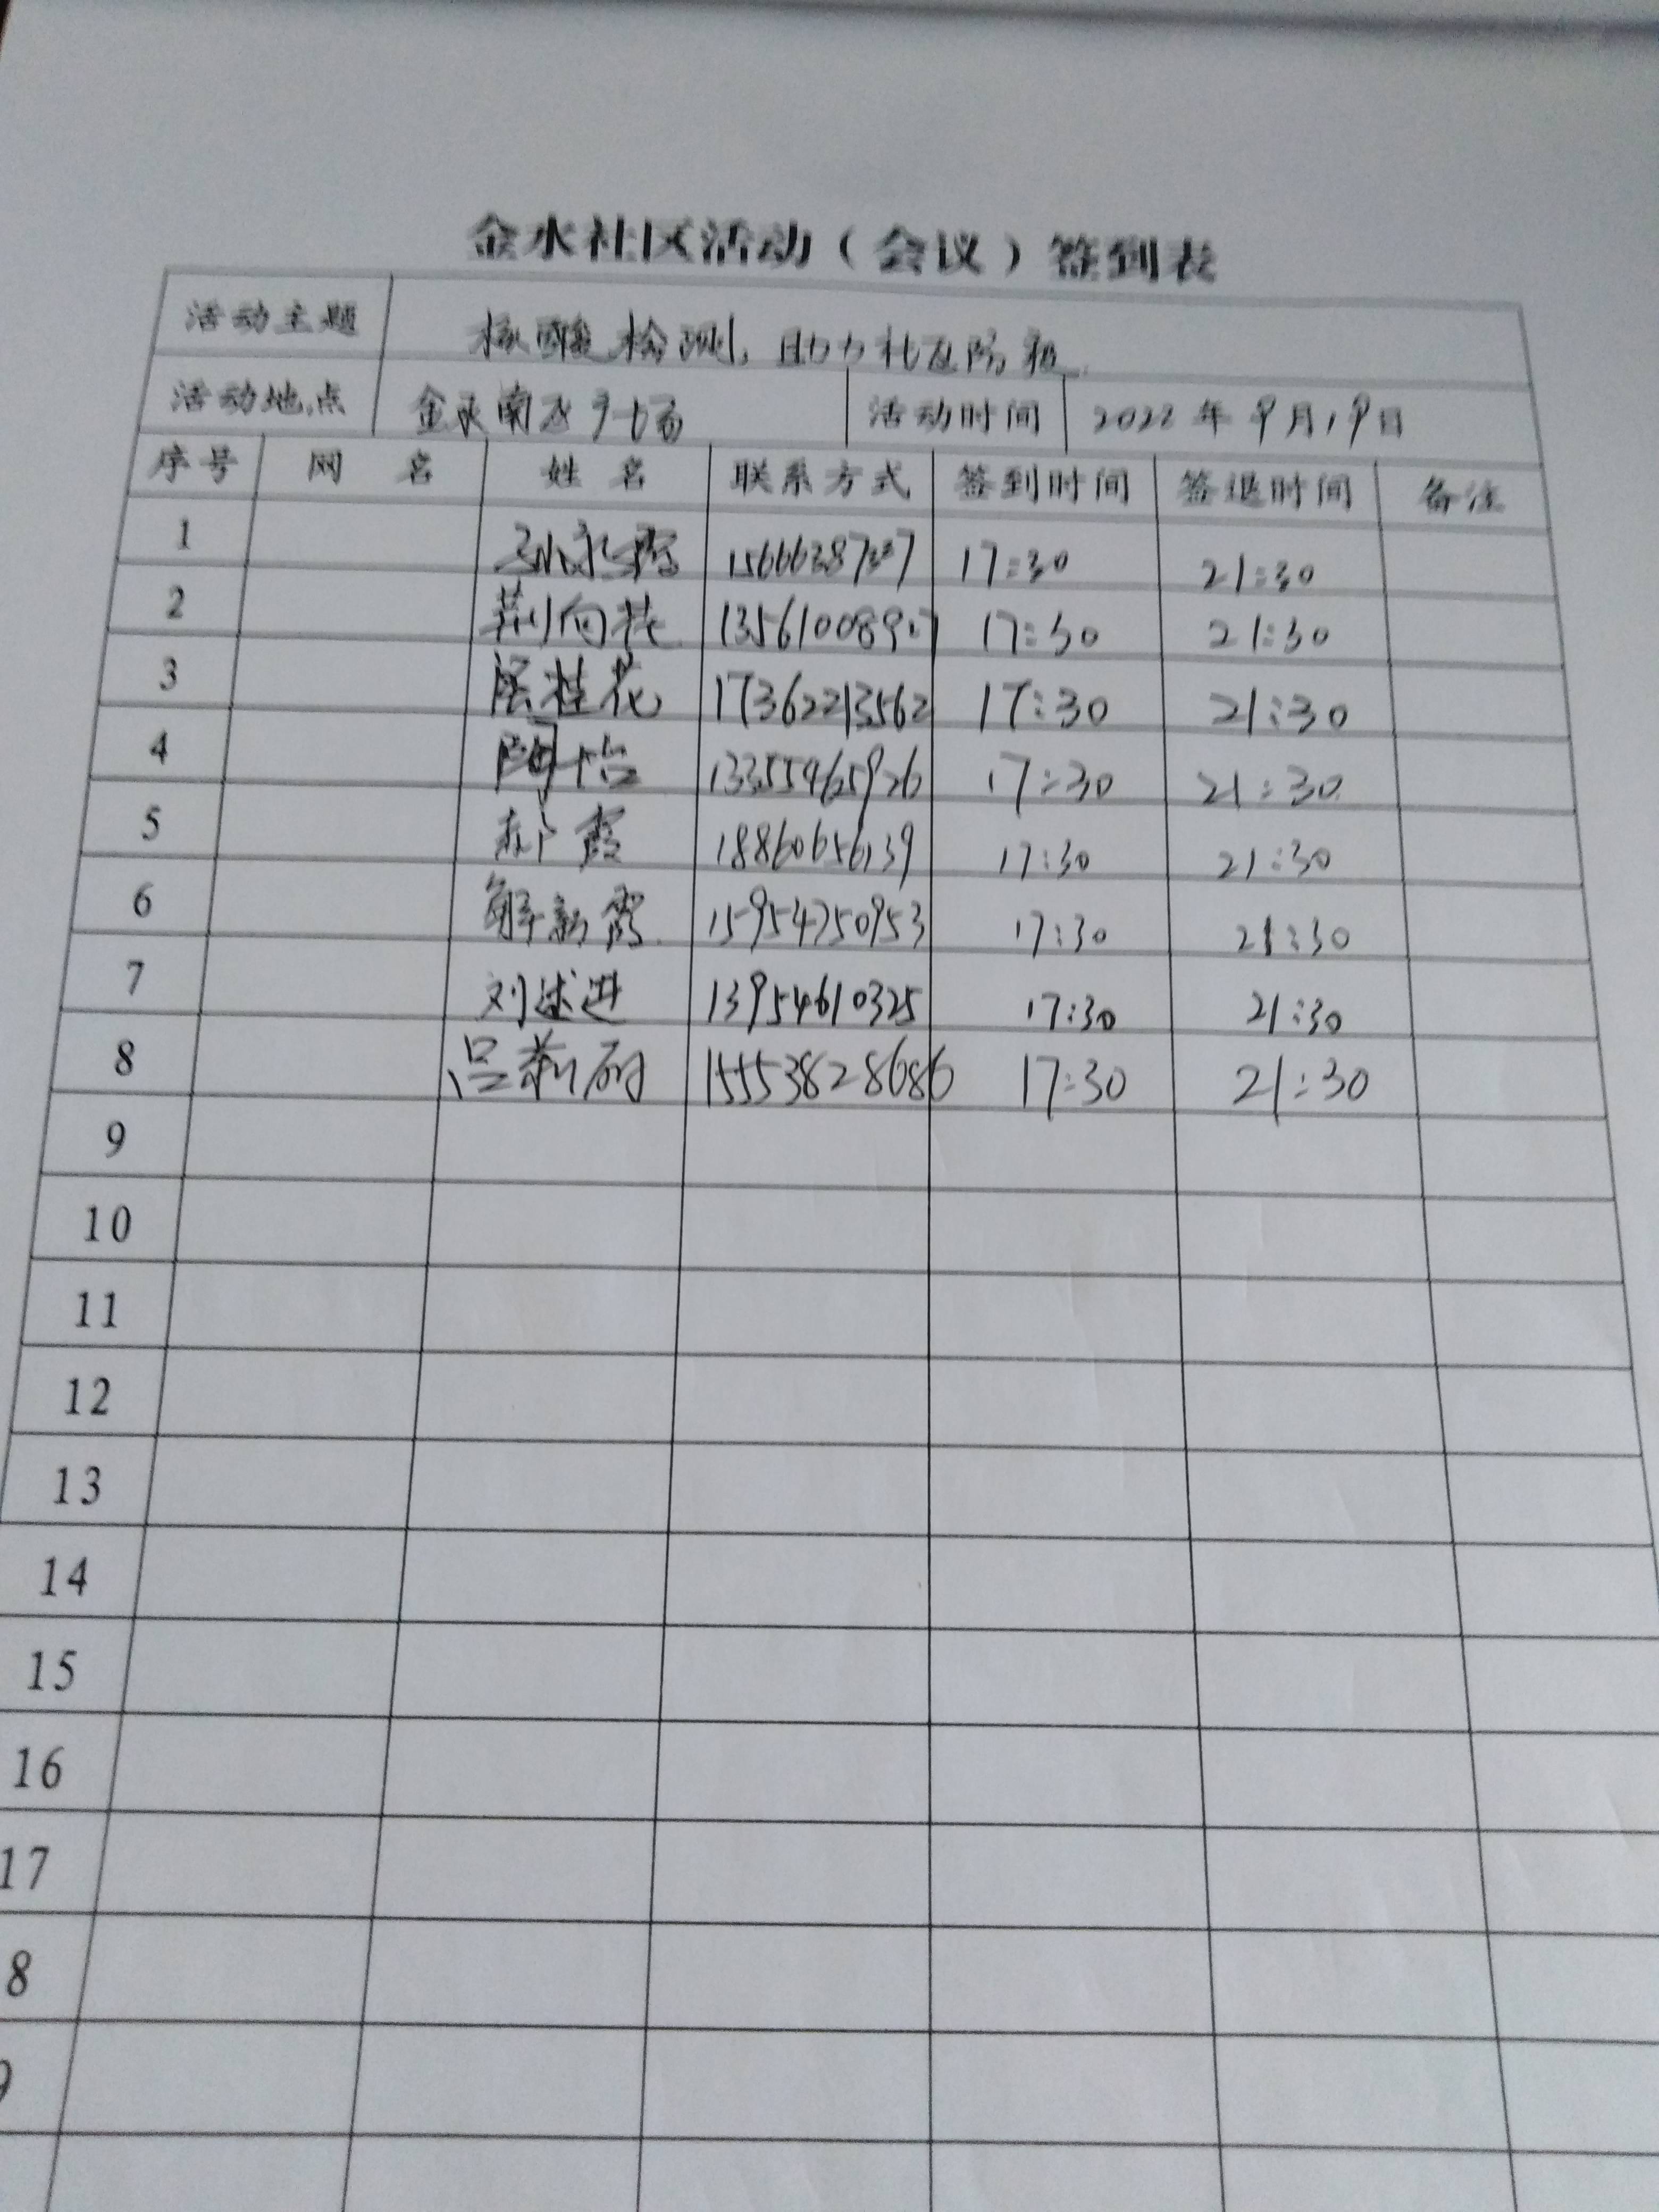 金水社区活动（会议）签到表
活动主题 核酸检测，助力社区防疫
活动地点 金水南区广场 活动时间 2022年9月19日
序号 网 名 姓 名 联系方式 签到时间 签退时间 备注
1 17:30 21:30
2 荆向花 17:30 21:30
3 桂花 17362213562 17:30 21:30
4 13355465926 17:30 21:30
5 郝霞 18860656139 17:30 21:30
6 解新霞 15954750953 17:30 21:30
7 刘述进 13954610325 17:30 21:30
8 吕莉丽 15553828686 17:30 21:30
9
10
11
12
13
14
15
16
17
8
9